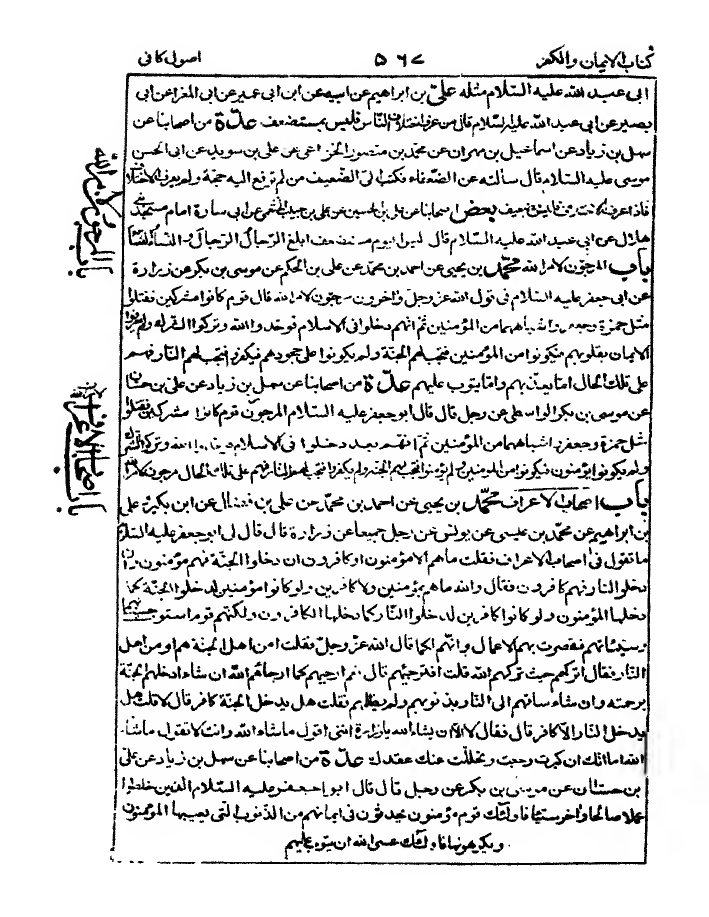 كتاب الايمان والكفر ۵۶۷ اصول كافى
ابى عبد الله عليه السلام مثله على بن ابراهيم عن ابيه عن ابن ابى عمير عن ابى المغرا عن ابى
بصير عن ابى عبد الله عليه السلام قال من عرف اختلاف الناس فليس بمستضعف عدة من اصحابنا عن
سهل بن زياد عن اسماعيل بن مهران عن محمد بن منصور الخزاعى عن على بن سويد عن ابى الحسن
موسى عليه السلام قال سالته عن الضعفاء فكتب الى الضعيف من لم ترفع اليه حجة ولم يعرف الاختلاف
فاذا عرف الاختلاف فليس بضعيف بعض اصحابنا عن على بن الحسين عن على بن حبيب الخثعمى عن ابى سارة امام مسجد بنى
هلال عن ابى عبد الله عليه السلام قال ليس اليوم مستضعف ابلغ الرجال الرجال والنساء النساء
باب المرجون لامر الله محمد بن يحيى عن احمد بن محمد عن على بن الحكم عن موسى بن بكر عن زرارة
عن ابى جعفر عليه السلام فى قول الله عز وجل واخرون مرجون لامر الله قال قوم كانوا مشركين فقتلوا
مثل حمزة وجعفر واشباههما من المؤمنين ثم انهم دخلوا فى الاسلام فوحدوا الله وتركوا الشرك ولم يعرفوا
الايمان بقلوبهم فيكونوا من المؤمنين فتجب لهم الجنة ولم يكونوا على جحودهم فيكفروا فتجب لهم النار فهم
على تلك الحال اما يعذبهم واما يتوب عليهم عدة من اصحابنا عن سهل بن زياد عن على بن حسان
عن موسى بن بكر الواسطى عن رجل قال قال ابو جعفر عليه السلام المرجون قوم كانوا مشركين فقتلوا
مثل حمزة وجعفر واشباههما من المؤمنين ثم انهم بعد دخلوا فى الاسلام فوحدوا الله وتركوا الشرك
ولم يكونوا يؤمنون فيكونوا من المؤمنين ولم يؤمنوا فتجب لهم الجنة ولم يكفروا فتجب لهم النار فهم على تلك الحال مرجون لامر الله
باب اصحاب الاعراف محمد بن يحيى عن احمد بن محمد عن على بن فضال عن ابن بكير و على
بن ابراهيم عن محمد بن عيسى عن يونس عن رجل جميعا عن زرارة قال قال لى ابو جعفر عليه السلام
ما تقول فى اصحاب الاعراف فقلت ما هم الا مؤمنون او كافرون ان دخلوا الجنة فهم مؤمنون وان
دخلوا النار فهم كافرون فقال والله ما هم بمؤمنين ولا كافرين ولو كانوا مؤمنين لدخلوا الجنة كما
دخلها المؤمنون ولو كانوا كافرين لدخلوا النار كما دخلها الكافرون ولكنهم قوم استوت حسناتهم
وسيئاتهم فقصرت بهم الاعمال وانهم لكما قال الله عز وجل فقلت امن اهل الجنة هم او من اهل
النار فقال اتركهم حيث تركهم الله قلت افترجئهم قال نعم ارجئهم كما ارجاهم الله ان شاء ادخلهم الجنة
برحمته وان شاء ساقهم الى النار بذنوبهم ولم يظلمهم فقلت هل يدخل الجنة كافر قال لا قلت هل
يدخل النار الا كافر قال فقال لا الا ان يشاء الله يا زرارة اننى اقول ما شاء الله وانت لا تقول ما شاء
الله اما انك ان كبرت رجعت وتحللت عنك عقدك عدة من اصحابنا عن سهل بن زياد عن على
بن حسان عن موسى بن بكر عن رجل قال قال ابو جعفر عليه السلام الذين خلطوا
عملا صالحا واخر سيئا فاولئك قوم مؤمنون يحدثون فى ايمانهم من الذنوب التى يعيبها المؤمنون
ويكرهونها فاولئك عسى الله ان يتوب عليهم
باب المرجون لامر الله
باب اصحاب الاعراف